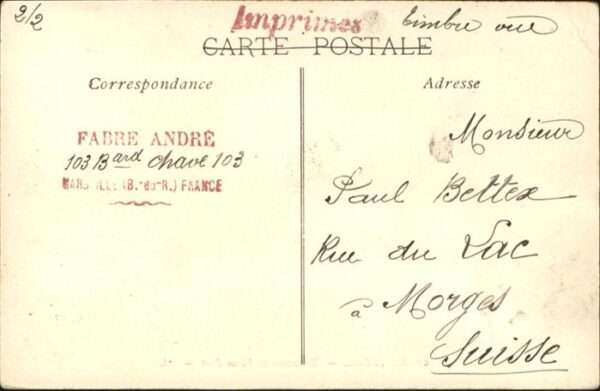 2/2
Imprimés
Timbre vue
CARTE POSTALE
Correspondance
Adresse
FABRE ANDRÉ
103 Bard Chave 103
MARSEILLE (B.-du-R.) FRANCE
Monsieur
Paul Bettex
Rue du Lac
à Morges
Suisse